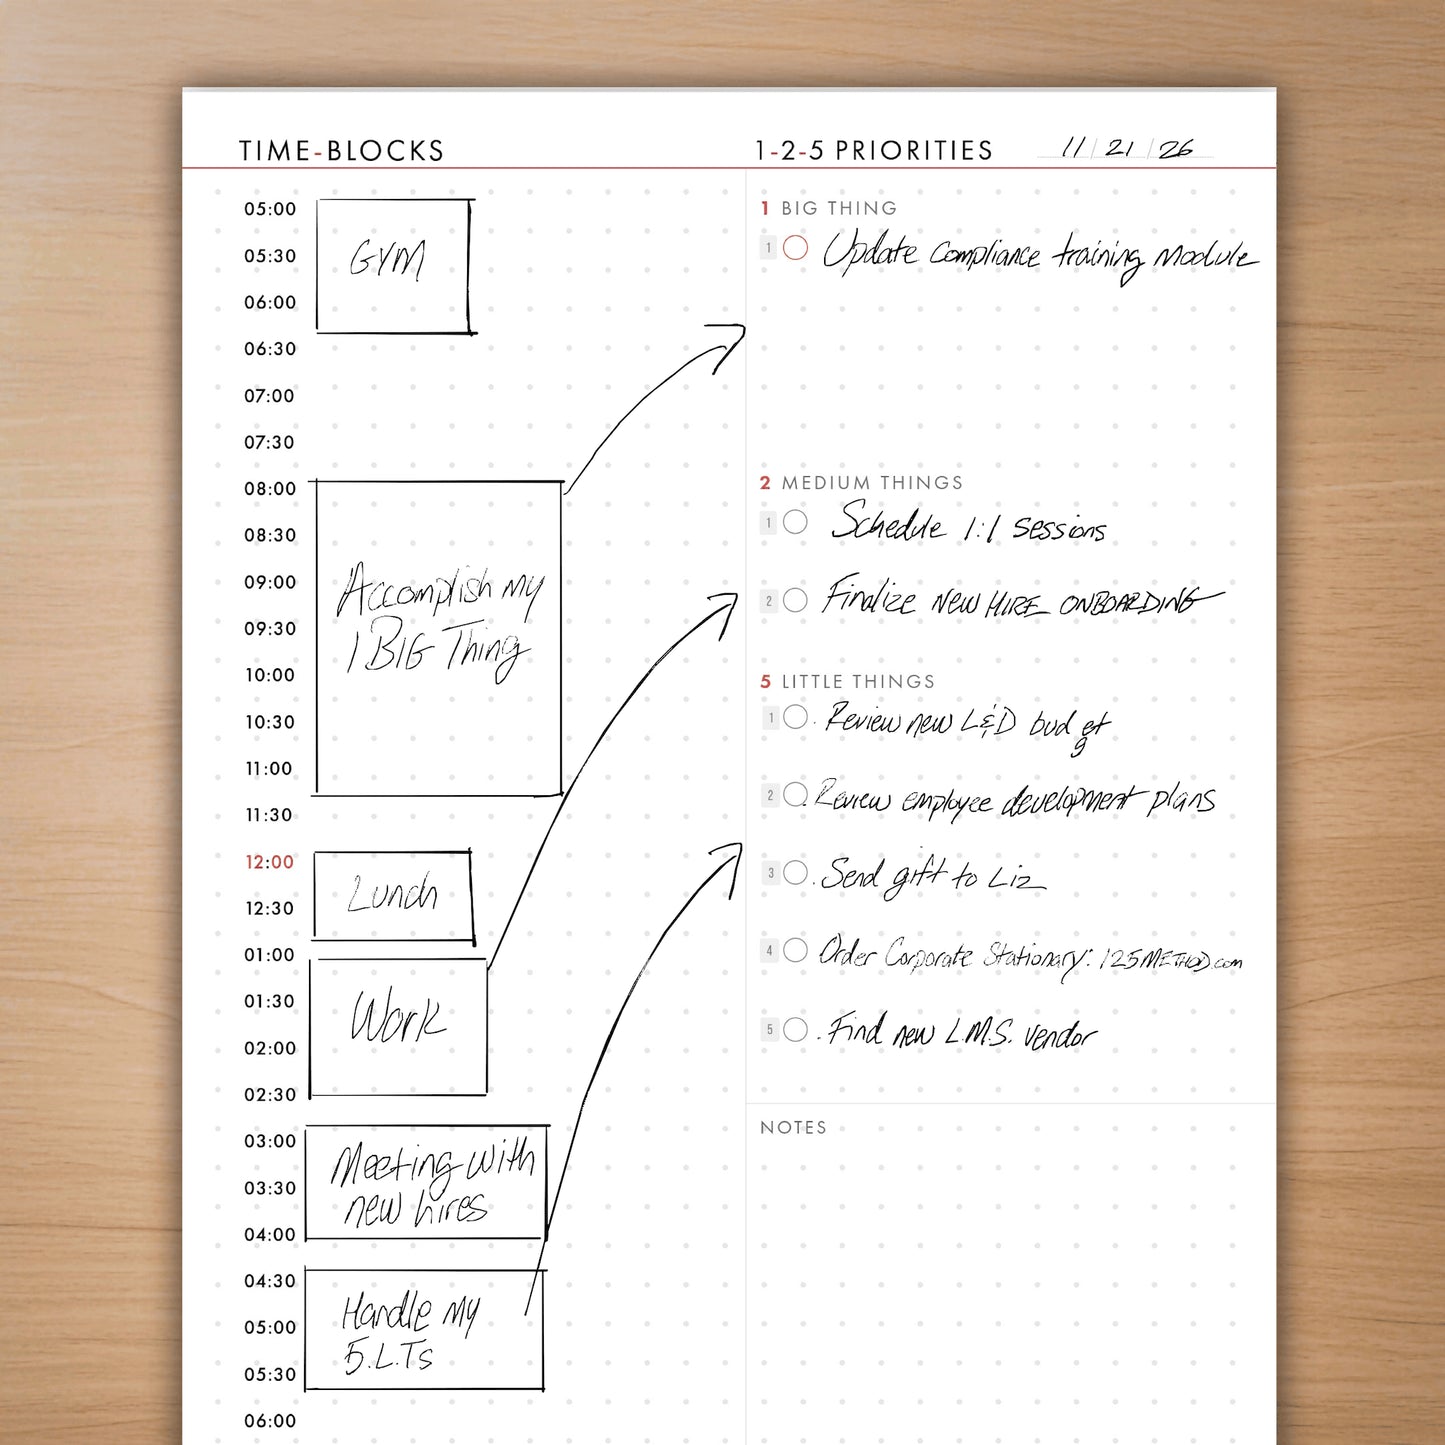 TIME-BLOCKS
05:00
05:30
06:00
06:30
07:00
07:30
08:00
08:30
09:00
09:30
10:00
10:30
11:00
11:30
12:00
12:30
01:00
01:30
02:00
02:30
03:00
03:30
04:00
04:30
05:00
05:30
06:00
GYM
Accomplish my
1 BIG Thing
Lunch
Work
Meeting with
new hires
Handle my
5.L.Ts
1-2-5 PRIORITIES 11/21/26
1 BIG THING
1 Update Compliance training module
2 MEDIUM THINGS
1 Schedule 1:1 Sessions
2 Finalize NEW HIRE ONBOARDING
5 LITTLE THINGS
1 . Review new L&D budget
g
2 . Review employee development plans
3 . Send gift to Liz
4 Order Corporate Stationary: 125METHOD.com
5 . Find new L.M.S. vendor
NOTES